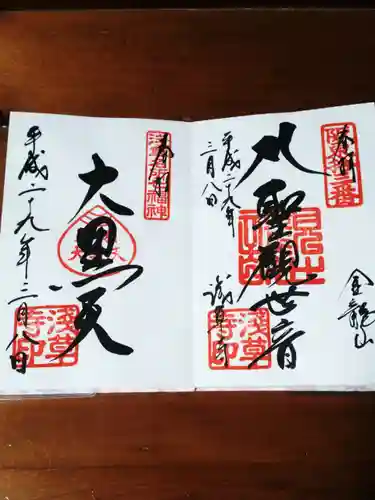 奉拝
坂東十三番
金龍山
聖観世音
浅草寺
平成二十九年
三月八日
浅草寺印
奉拝
浅草名所七福神
大黒天
浅草寺印
平成二十九年三月八日